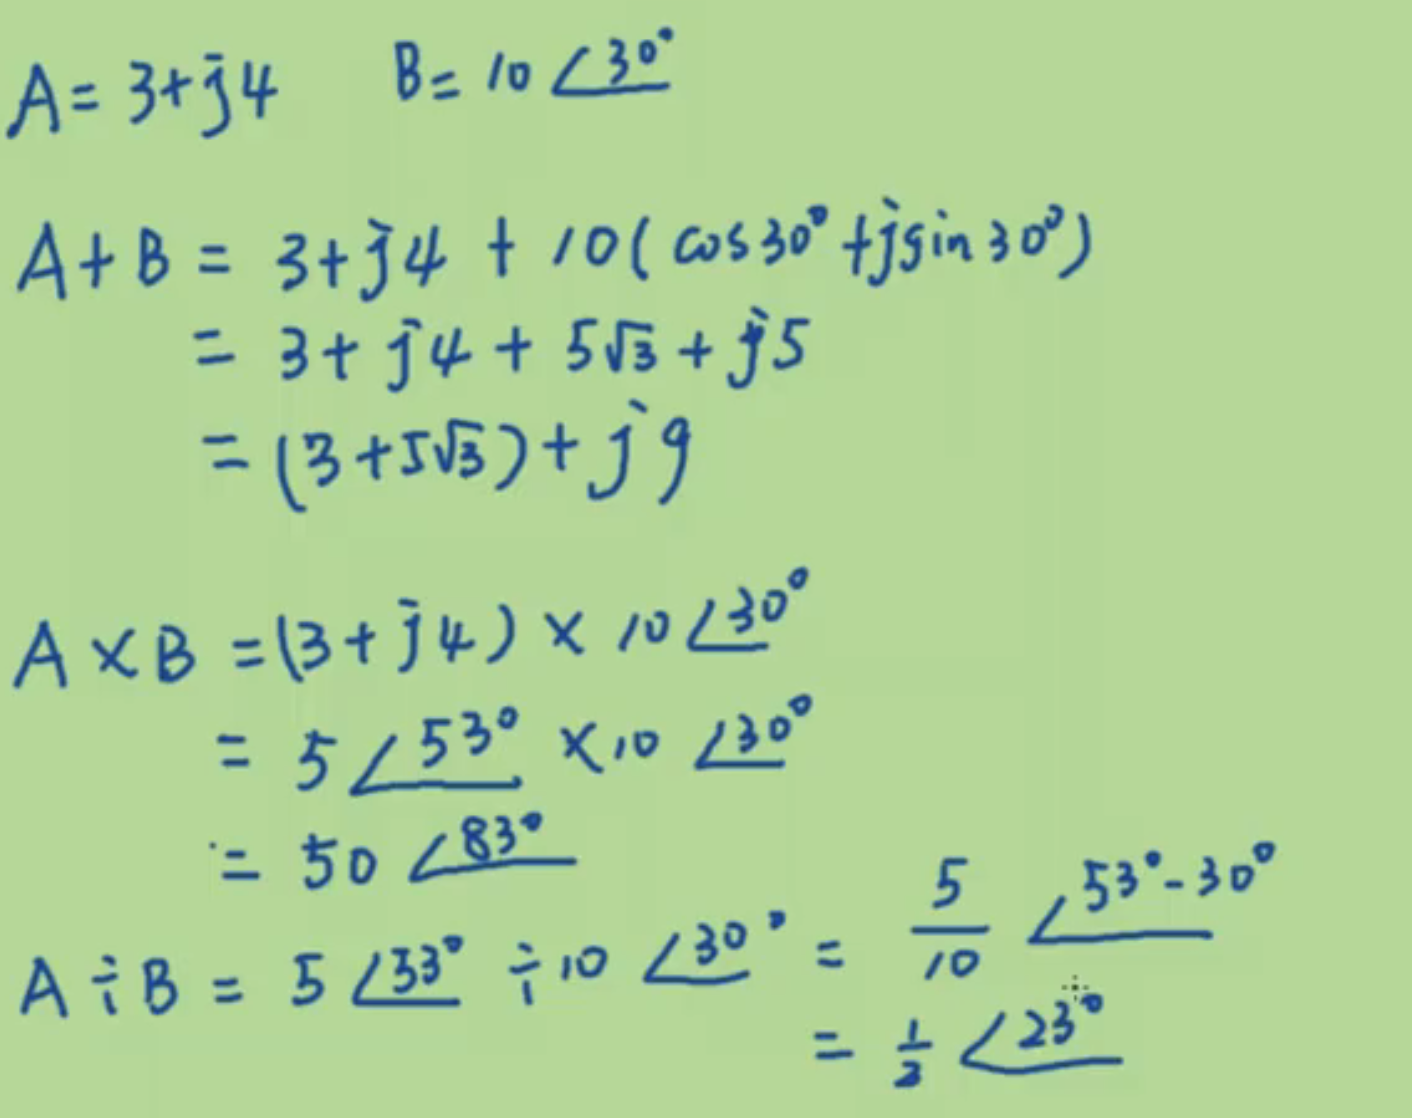 A = 3+j4 B = 10∠30°
A+B = 3+j4 + 10(cos30°+jsin30°)
= 3+j4+5√3+j5
= (3+5√3)+j9
A×B =(3+j4)×10∠30°
= 5∠53° ×10∠30°
= 50∠83°
A÷B = 5∠53° ÷10∠30° = 5/10 ∠53°-30°
= 1/2 ∠23°